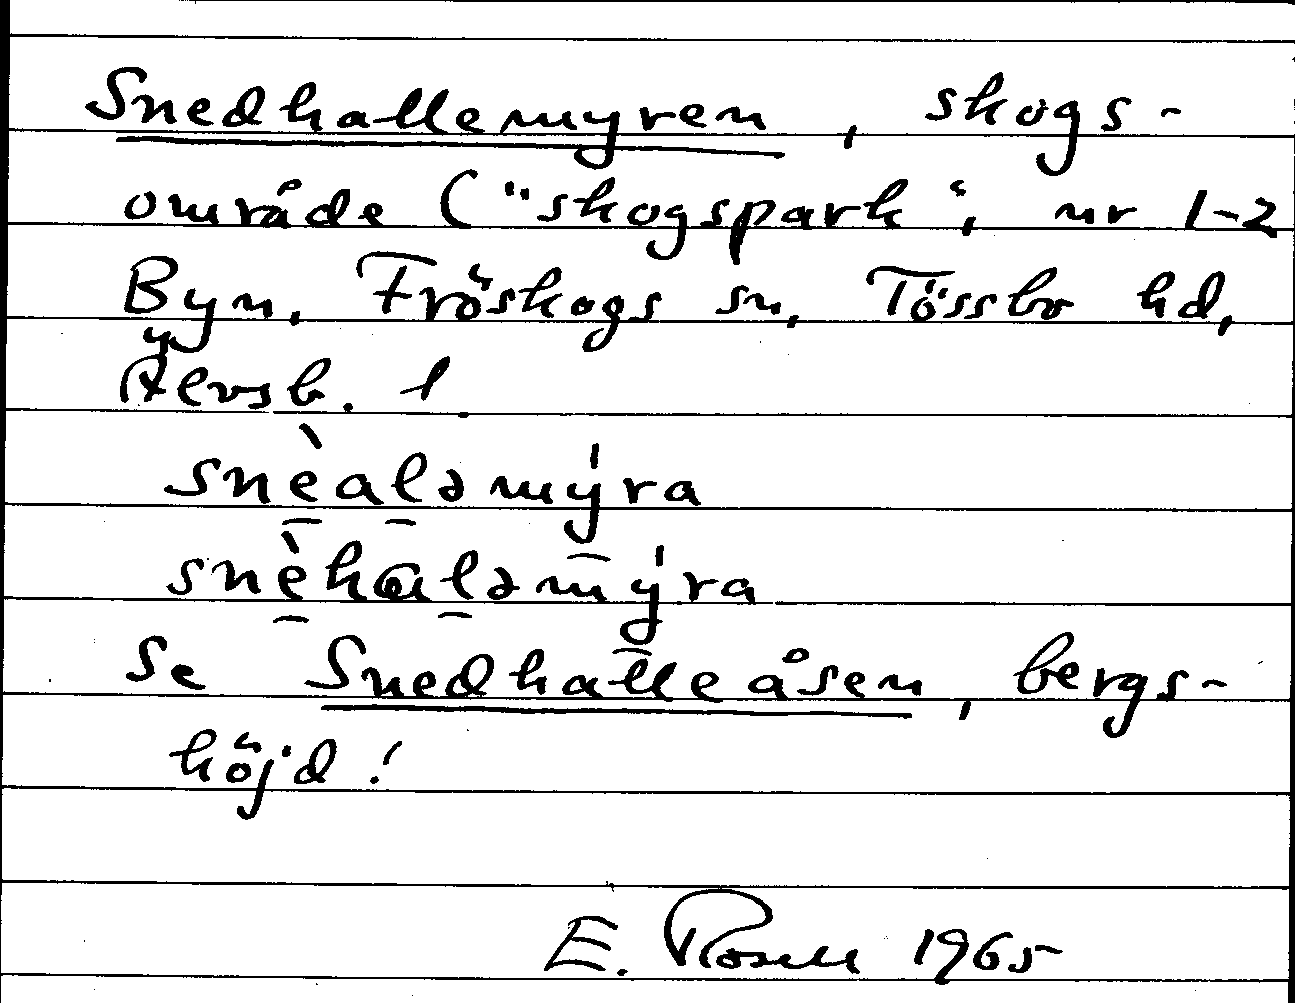 Snedhallemyren, skogs-
område ("skogspark", nr 1-2
Byn, Fröskogs sn, Tössbo hd,
Älvsb. l.
snèalǝmýra
snèhalǝmýra
Se Snedhalleåsen, bergs-
höjd!
E. Rosell 1965